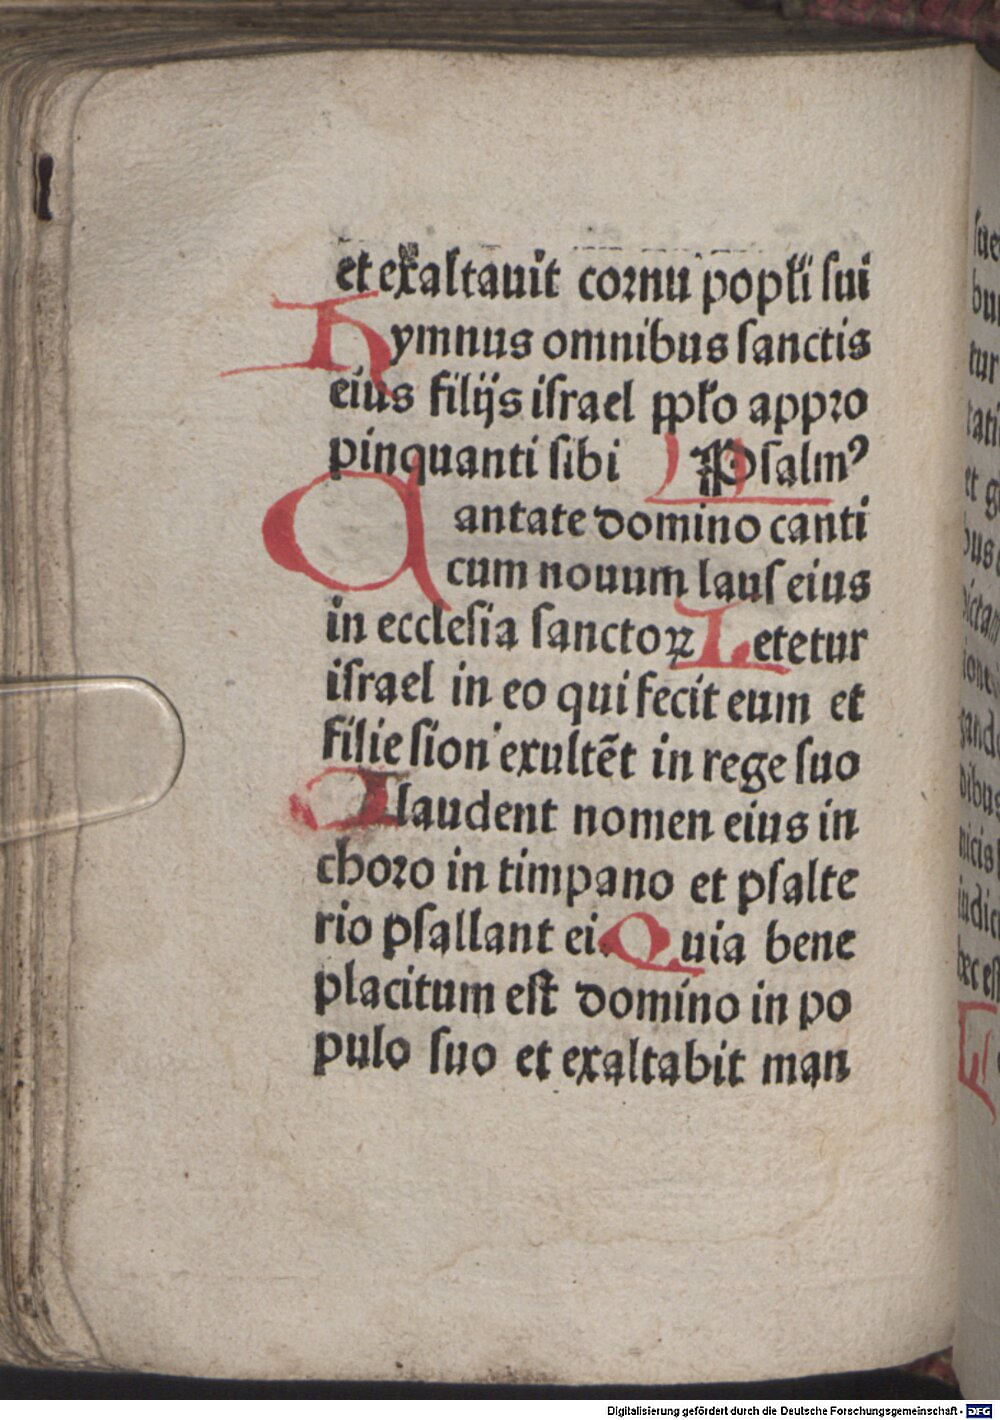 et exaltauit cornu popl̄i sui
Hymnus omnibus sanctis
eius filijs israel pp̄ło appro
pinquanti sibi Psalmꝰ
Cantate domino canti
cum nouum laus eius
in ecclesia sanctoꝝ Letetur
israel in eo qui fecit eum et
filie sion exultēt in rege suo
laudent nomen eius in
choro in timpano et psalte
rio psallant ei. Quia bene
placitum est domino in po
pulo suo et exaltabit man
Digitalisierung gefördert durch die Deutsche Forschungsgemeinschaft - DFG